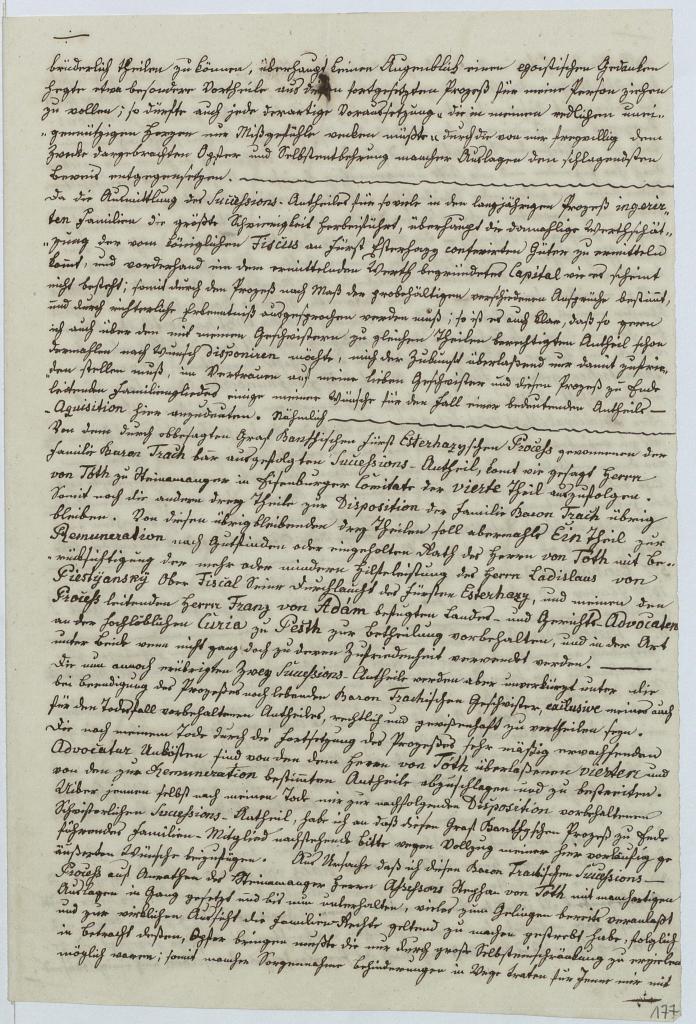 brüderlich theilen zu können, überhaupt keinen Augenblick einen egoistischen Gedanken
hegte etwa besondere Vortheile aus dem fortgesetzten Prozeß für meine Person ziehen
zu wollen; so dürfte auch jede derartige Voraussetzung, die in meinem redlichen unei-
gennützigen Herzen nur Mißgefühle wecken müßte, durch die von mir freywillig dem
Zwecke dargebrachten Opfer und Selbstentbehrung mancher Auslagen den schlagendsten
Beweis entgegensetzen.
Da die Ausmittlung des Successions-Antheiles für so viele in den langjährigen Prozeß
ten Familien die größte Schwierigkeit herbeiführt, überhaupt die damahlige Werthschät-
zung der vom königlichen Fiscus an Fürst Esterhazy conferirten Güter zu ermitteln
kommt, und vorderhand ein dem ermittelnden Werth begründetes Capital wie es scheint
nicht besteht; somit durch den Prozeß nach Maß der probehältigen verschiedenen Ansprüche bestimmt,
und durch richterliche Erkenntniß ausgesprochen werden muß; so ist es auch klar, daß so gern
ich auch über den mit meinen Geschwistern zu gleichen Theilen berechtigten Antheil schon
dermahlen nach Wunsch disponiren möchte, mich der Zukunft überlassend nur damit zufrie-
den stellen muß, im Vertrauen auf meine lieben Geschwister und diesen Prozeß zu Ende
leitenden Familiengliedes einige meiner Wünsche für den Fall einer bedeutenden Antheils-
Aquisition hier anzudeuten. Nähmlich
Von dem durch obbesagten Graf Banffischen Fürst Esterhazyschen Process gewonnenen der
Familie Baron Trach bar ausgefolgten Successions-Antheil, komt wie gesagt Herrn
von Tóth zu Steinamanger im Eisenburger Comitate der vierte Theil auszufolgen.
Somit noch die andern drey Theile zur Disposition der Familie Baron Trach übrig
bleiben. Von diesen übrigbleibenden drey Theilen soll abermahls Ein Theil zur
Remuneration nach Gutfinden oder eingeholten Rath des Herrn von Tóth mit Be-
rücksichtigung der mehr oder mindern Hilfeleistung des Herrn Ladislaus von
Piestyánsky Ober Fiscal Seiner Durchlaucht des Fürsten Esterhazy, und meinen den
Process leitenden Herrn Franz von Adám befugten Landes- und Gerichts Advocaten
an der hochlöblichen Curia zu Pesth zur Betheilung vorbehalten, und in der Art
unter beide wenn nicht ganz doch zu deren Zufriedenheit verwendt werden.
Die nun annoch erübrigten Zwey Successions-Antheile werden aber unverkürzt unter die
bei Beendigung des Prozesses noch lebenden Baron Trachischen Geschwister, exclusive meines auch
für den Todesfall vorbehaltenen Antheiles, rechtlich und gewissenhaft zu vertheilen seyn.
Die nach meinem Tode durch die Fortsetzung des Prozeßes sehr mässig erwachsenden
Advocatur Unkösten sind von den dem Herrn von Tóth überlaßenen vierten und
von den zur Remuneration bestimmten Antheile abzuschlagen und zu bestreiten.
Über jennen selbst nach meinen Tode mir zur nachfolgenden Disposition vorbehaltenen
Schwisterlichen Successions-Antheil, habe ich an daß diesen Graf Banffyschen Prozeß zu Ende
führendes Familien-Mitglied nachstehende bitte wegen Vollzug meiner hier vorläufig ge
äußerten Wünsche beizufügen. Aus Ursache daß ich diesen Baron Trachischen Successions-
Process auf Anrathen des Steinamanger Herrn Assessors Stephan von Tóth mit manchartigen
Auslagen in Gang gesetzt und bis nun unterhalten, vieles zum Gelingen bereits veranlaßt
und zur wirklichen Aussicht die Familien-Rechte geltend zu machen gestrebt habe, folglich
in betracht deßen, Opfer bringen mußte die nur durch große Selbsteinschränkung zu erzielen
möglich waren; somit mancher Behinderungen in Wege traten für Jenne mir mit
177